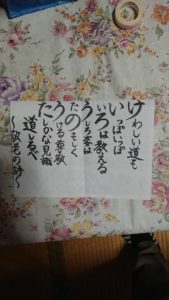 けわしい道も
いっぽいっぽ
いろは教える
うしろ姿は
たのもしく
うける尊敬
たしかな見識
道しるべ
〜敬老の詩〜